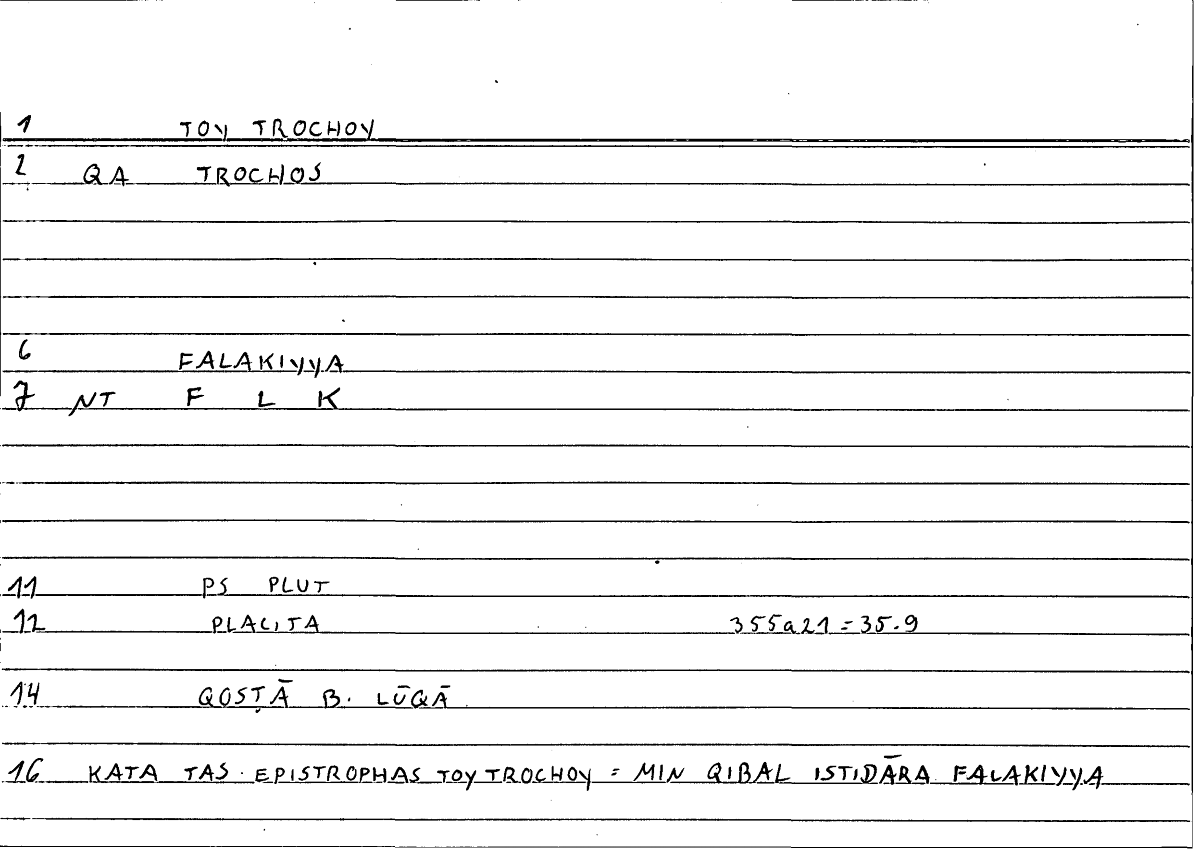 1 TOY TROCHOY
2 QA TROCHOS
6 FALAKIYYA
7 NT F L K
11 PS PLUT
12 PLACITA 355a21 = 35.9
14 QOSṬĀ B. LŪQĀ
16 KATA TAS EPISTROPHAS TOY TROCHOY = MIN QIBAL ISTIDĀRA FALAKIYYA